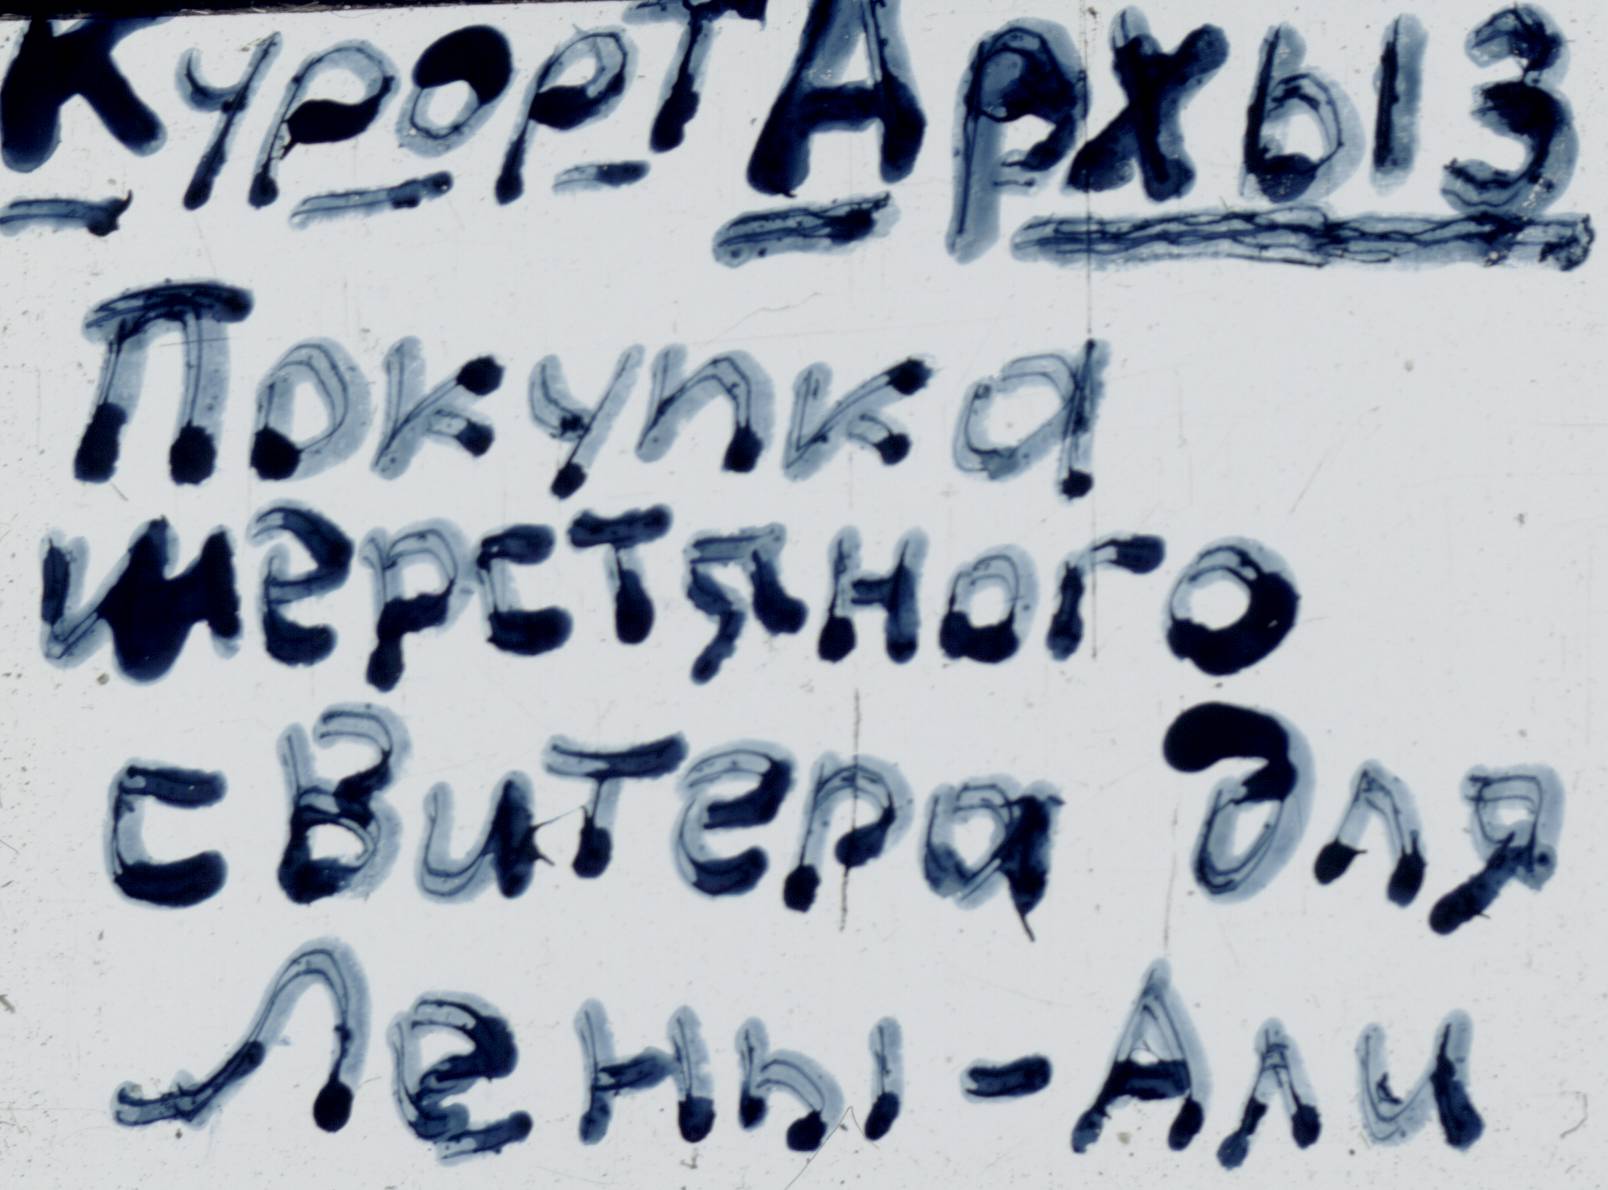 Курорт Архыз
Покупка
шерстяного
свитера для
Лены-Али